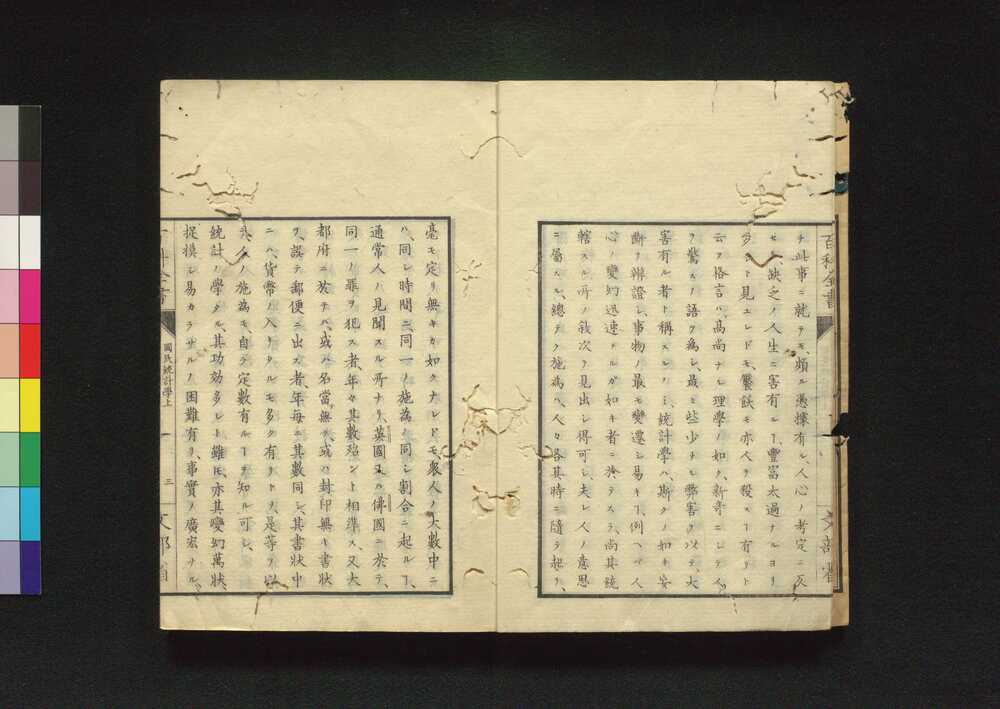 百科全書
チ此事ニ就テモ、頗ル憑據有ル、人心ノ考定ニ反
セリ、缺乏ノ人生ニ害有ルヿ、豊富太過ナルヨリ
多シト見ユレドモ、饜飫モ亦人ヲ殺スヿ有リト
云フ格言ハ、高尚ナル理學ノ如ク、新奇ニシテ人
ヲ驚スノ語ヲ為シ、最モ些少ナル弊害ヲ以テ、大
害有ル者ト稱スルノミ、統計學ハ、斯クノ如キ妄
斷ヲ辨證シ、事物ノ最モ變遷シ易キヿ、例ヘバ人
心ノ變幻迅速ナルガ如キ者ニ於テスラ、尚其統
轄スル所ノ敍次ヲ見出シ得可シ、夫レ人ノ意思
ニ屬スル、總テノ施為ハ、人々各其時ニ隨テ起リ、
文部省
毫モ定リ無キガ如クナレドモ、衆人ノ大數中ニ
ハ、同シ時間ニ、同一ノ施為ノ、同シ割合ニ起ルヿ、
通常人ノ見聞スル所ナリ、英國又ハ佛國ニ於テ、
同一ノ罪ヲ犯ス者、年々其數殆ント相準ス、又大
都府ニ於テハ、或ハ名當無ク、或ハ封印無キ書狀
ヲ、誤テ郵便ニ出ス者、年毎ニ其數同シ、其書狀中
ニハ、貨幣ノ入リタルモ多ク有リト、是等ヲ以
人ノ施為モ、自ラ定數有ルヿヲ知ル可シ、
統計ノ學タル、其功効多シト雖𪜈、亦其變幻萬狀、
捉摸シ易カラサルノ困難有リ、事實ノ廣宏ナル、
國民統計學上
三